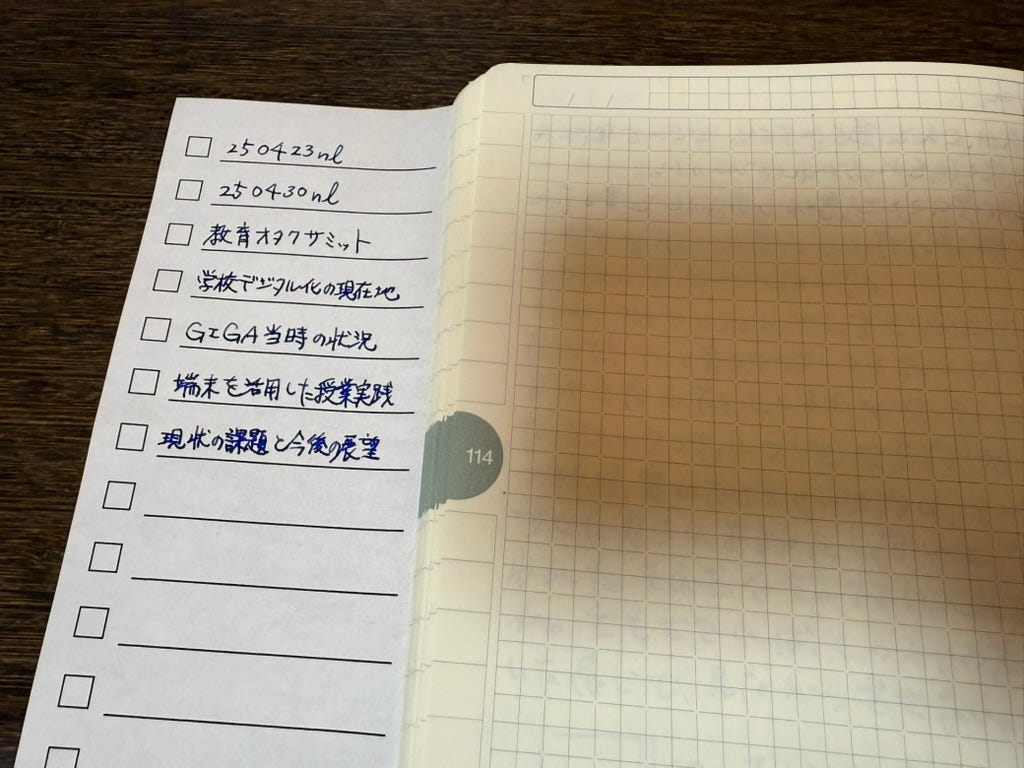 250423nl
250430nl
教育オタクサミット
学校デジタル化の現在地
GIGA当時の状況
端末を活用した授業実践
現状の課題と今後の展望
114
/ / /